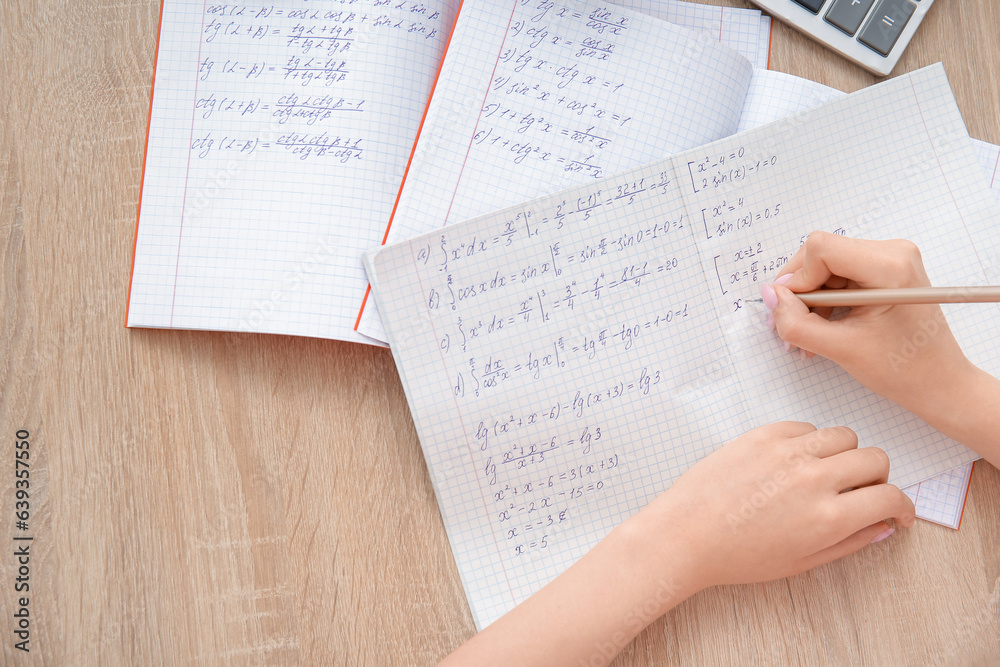 cos(α-β) = cosα cosβ + sinα sinβ
tg(α+β) = (tgα+tgβ)/(1-tgα tgβ)
tg(α-β) = (tgα-tgβ)/(1+tgα tgβ)
ctg(α+β) = (ctgα ctgβ-1)/(ctgα+ctgβ)
ctg(α-β) = (ctgα ctgβ+1)/(ctgβ-ctgα)
1) tg x = sin x/cos x
2) ctg x = cos x/sin x
3) tg x · ctg x = 1
4) sin² x + cos² x = 1
5) 1 + tg² x = 1/cos² x
6) 1 + ctg² x = 1/sin² x
a) ∫ x⁴ dx = x⁵/5 |²₋₁ = 2⁵/5 - (-1)⁵/5 = (32+1)/5 = 33/5
b) ∫ cos x dx = sin x | = sin π/2 - sin 0 = 1-0 = 1
c) ∫ x³ dx = x⁴/4 |³₁ = 3⁴/4 - 1⁴/4 = (81-1)/4 = 20
d) ∫ dx/cos² x = tg x | = tg π/4 - tg 0 = 1-0 = 1
lg(x² + x - 6) - lg(x+3) = lg 3
lg (x² + x - 6)/(x+3) = lg 3
x² + x - 6 = 3(x+3)
x² - 2x - 15 = 0
x = -3 ∉
x = 5
[ x² - 4 = 0
2 sin(x) - 1 = 0
[ x² = 4
sin(x) = 0,5
[ x = ±2
x = π/6 + 2πn
x
Adobe Stock | 639357550
Adobe Stock